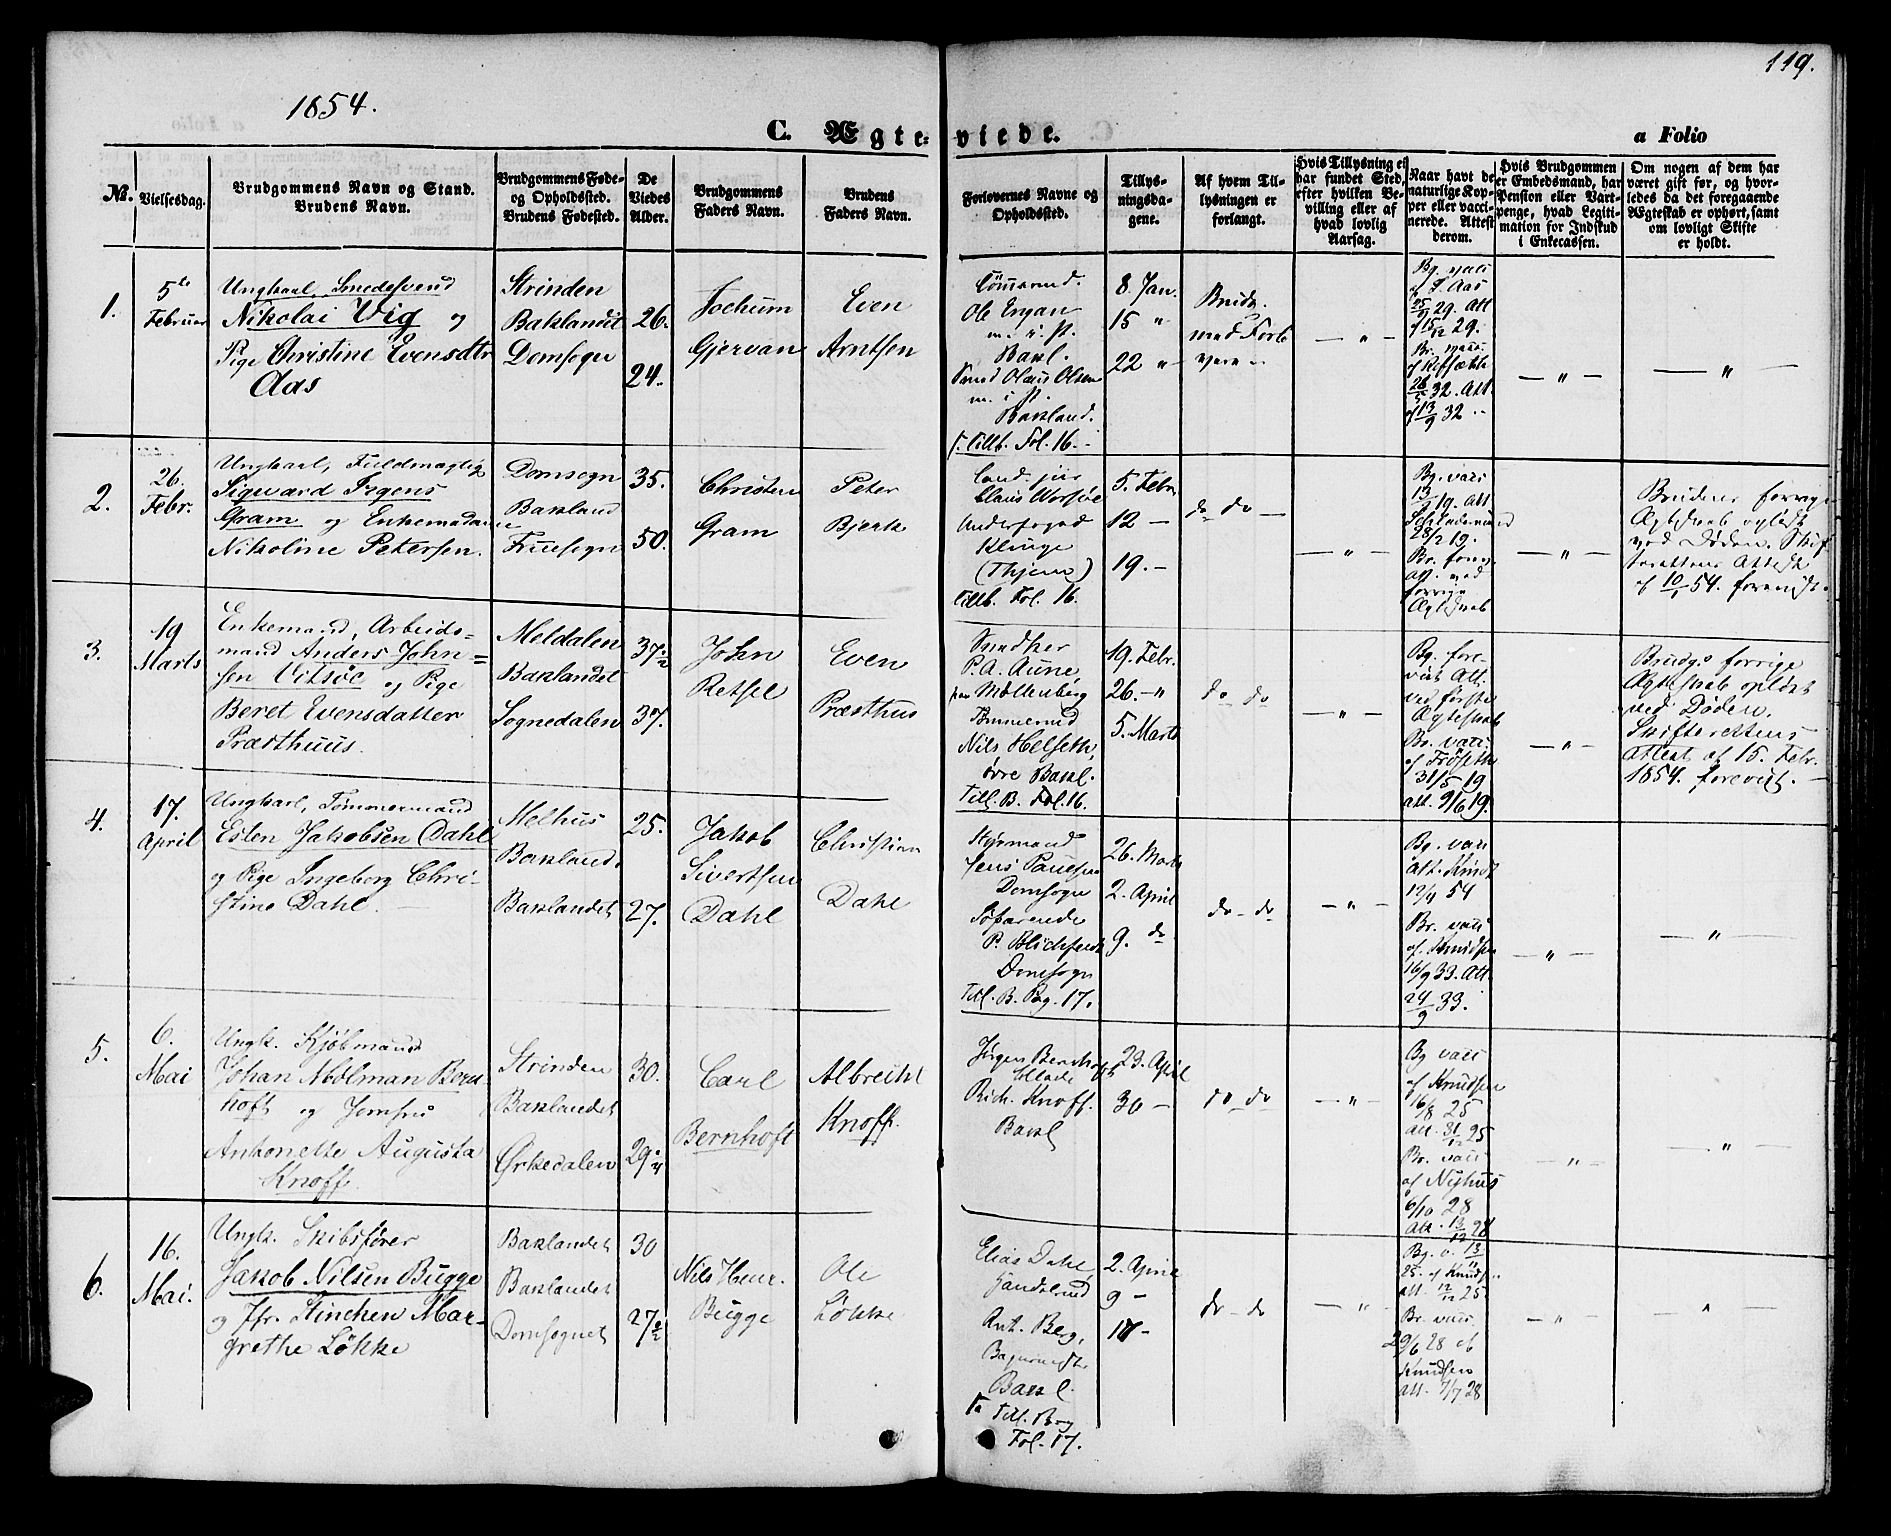 119.
1854.
C. Ægteviede.
a Folio
No.
Vielsesdag.
Brudgommens Navn og Stand.
Brudens Navn.
Brudgommens Føde-
og Opholdssted.
Brudens Fødested.
De
Viedes
Alder.
Brudgommens
Faders Navn.
Brudens
Faders Navn.
Forlovernes Navne og
Opholdssted.
Tillys-
ningsda-
gene.
Af hvem Til-
lysningen er
forlangt.
Hvis Tillysning ei
har fundet Sted,
efter hvilken Be-
villing eller af
hvad lovlig
Aarsag.
Naar havt de
naturlige Kop-
per eller vacci-
nerede. Attest
derom.
Hvis Brudgommen
er Embedsmand, har
Pension eller Vart-
penge, hvad Legiti-
mation for Indskud
i Enkecassen.
Om nogen af dem har
været gift før, og hvor-
ledes da det foregaaende
Ægteskab er ophørt, samt
om lovligt Skifte
er holdt.
1.
5te
Februar
Ungkarl, Smedesvend
Nikolai Vig og
Pige Christine Evensdtr
Aas
Strinden
Baklandet
Domsogn
26.
24.
Jochum
Gjervan
Even
Arntsen
Ole Engan
m. i st.
Bakl.
Smed Olaus Olsen
m. i st.
Bakland.
f. Tillb. Fol. 16.
8. Jan.
15 "
22 "
Brudg.
med Forlo
vern
— " —
Bg. vacc
af P. Aas
29. Att
29.
Br. vacc
32. Att.
af 13/9 32
— " —
— " —
2.
26.
Febr.
Ungkarl, Fuldmægtig
Sigward Irgens
Gram og Enkemadam
Nikoline Petersen.
Domsogn
Bakland
Fruesogn
35.
50.
Christen
Gram
Peter
Bjerk
Cand. jur
Claus Worsøe
Underfoged
Klinge
(Thjem)
Tillb. Fol. 16.
5. Febr.
12 —
19. —
do do —
— " —
Bg. vacc
13/ 19. Att
28/2 19.
Br. forev.
Att. ved
forrige
Ægteskab
— " —
Brudens forrige
Ægteskab opløst
ved Døden. Skif
terettens Attest
af 10/1 54. forevist.
3.
19
Marts
Enkemand, Arbeids-
mand Anders John-
sen Vitsøe og Pige
Beret Evensdatter
Præsthuus.
Meldalen
Baklandet
Sognedalen
37 1/2
37.
John
Retsel
Even
Præsthus
P. A. Aune,
paa Møllenberg
Tømmermd
Nils Helseth,
øvre Bakl.
Till. B. Fol. 16.
19. Febr.
26. - "
5. Marts
do do
— " —
Bg. fore-
vist Att.
ved første
Ægteskab
Br. vacc.
af Frøseth
31/5 19
att. 9/6 19.
— " —
Brudgs forrige
Ægteskab opløst
ved Døden.
Skifterettens
Attest af 15. Febr.
1854. forevist. —
4.
17.
April
Ungkarl, Tømmermand
Esten Jakobsen Dahl
og Pige Ingeborg Chri-
stine Dahl. —
Melhus
Bakland.
Baklandet
25.
27.
Jakob
Sivertsen
Dahl
Christian
Dahl
Styrmand
Jens Paulsen
Domsogn
Søfarende
P. Blichfeldt
Domsogn
Till. B. Pag. 17.
26. Marts
2. April
9. do
do - do
— " —
Bg. vacc
att. Knudt
12/4 54
Br. vacc
af. Knudsen
16/9 33. Att.
24/9 33.
— " —
— " —
5.
6.
Mai
Ungk. Kjøbmand
Johan Mølman Bern
hoft og Jomfru
Antonette Augusta
Knoff.
Strinden
Baklandet
Ørkedalen
30.
29
Carl
Bernhoft
Albrecht
Knoff.
Jørgen Bernhoft
Rich. Knoff.
Bakl
23. April
30 —
do - do
— " —
Bg vacc
af Knudsen
16/8 25
att. 31/12 25
Br. vacc
af Nyhuus
6/10 28
Att. 13/12 28
— " —
— " —
6.
16.
Mai.
Ungk. Skibsfører
Jakob Nilsen Bugge
og Jfr. Stinchen Mar-
grethe Løkke
Baklandet
Baklandet
Domsognet
30
27
Nils Henr.
Bugge
Ole
Løkke
Elias Dahl,
Handelsmd
Ant. Berg,
Bakl.
Till. Bog
Fol. 17.
2. April
9 —
17 —
do - do
— " —
Bg. v. 13/11
25. af Knudsen
att. 12/12 25
Br. vacc.
29/6 28 af
Knudsen
att. 7/7 28
— " —
— " —